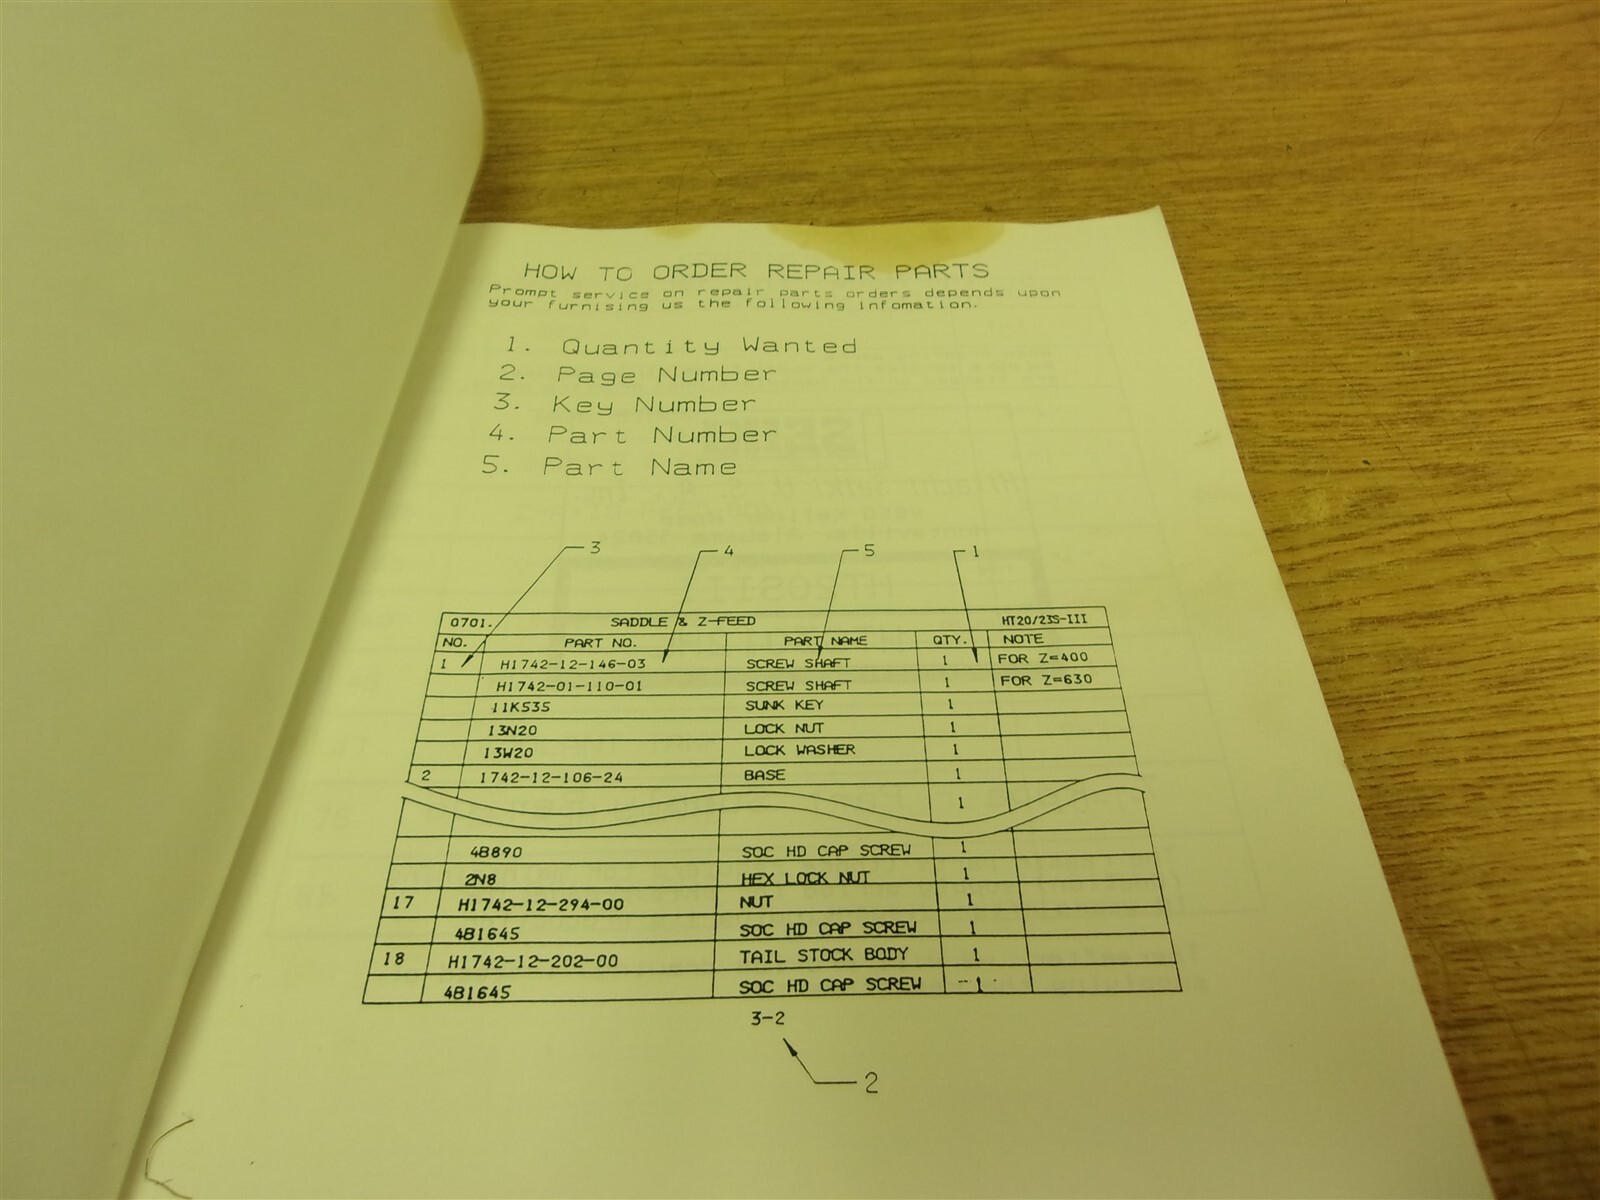 HOW TO ORDER REPAIR PARTS
Prompt service on repair parts orders depends upon
your furnising us the following infomation.
1. Quantity Wanted
2. Page Number
3. Key Number
4. Part Number
5. Part Name
3 4 5 1
0701. SADDLE & Z-FEED HT20/23S-III
NO. PART NO. PART NAME QTY. NOTE
1 H1742-12-146-03 SCREW SHAFT 1 FOR Z=400
H1742-01-110-01 SCREW SHAFT 1 FOR Z=630
11K535 SUNK KEY 1
13N20 LOCK NUT 1
13W20 LOCK WASHER 1
2 1742-12-106-24 BASE 1
1
4B890 SOC HD CAP SCREW 1
2N8 HEX LOCK NUT 1
17 H1742-12-294-00 NUT 1
4B1645 SOC HD CAP SCREW 1
18 H1742-12-202-00 TAIL STOCK BODY 1
4B1645 SOC HD CAP SCREW 1
3-2
2